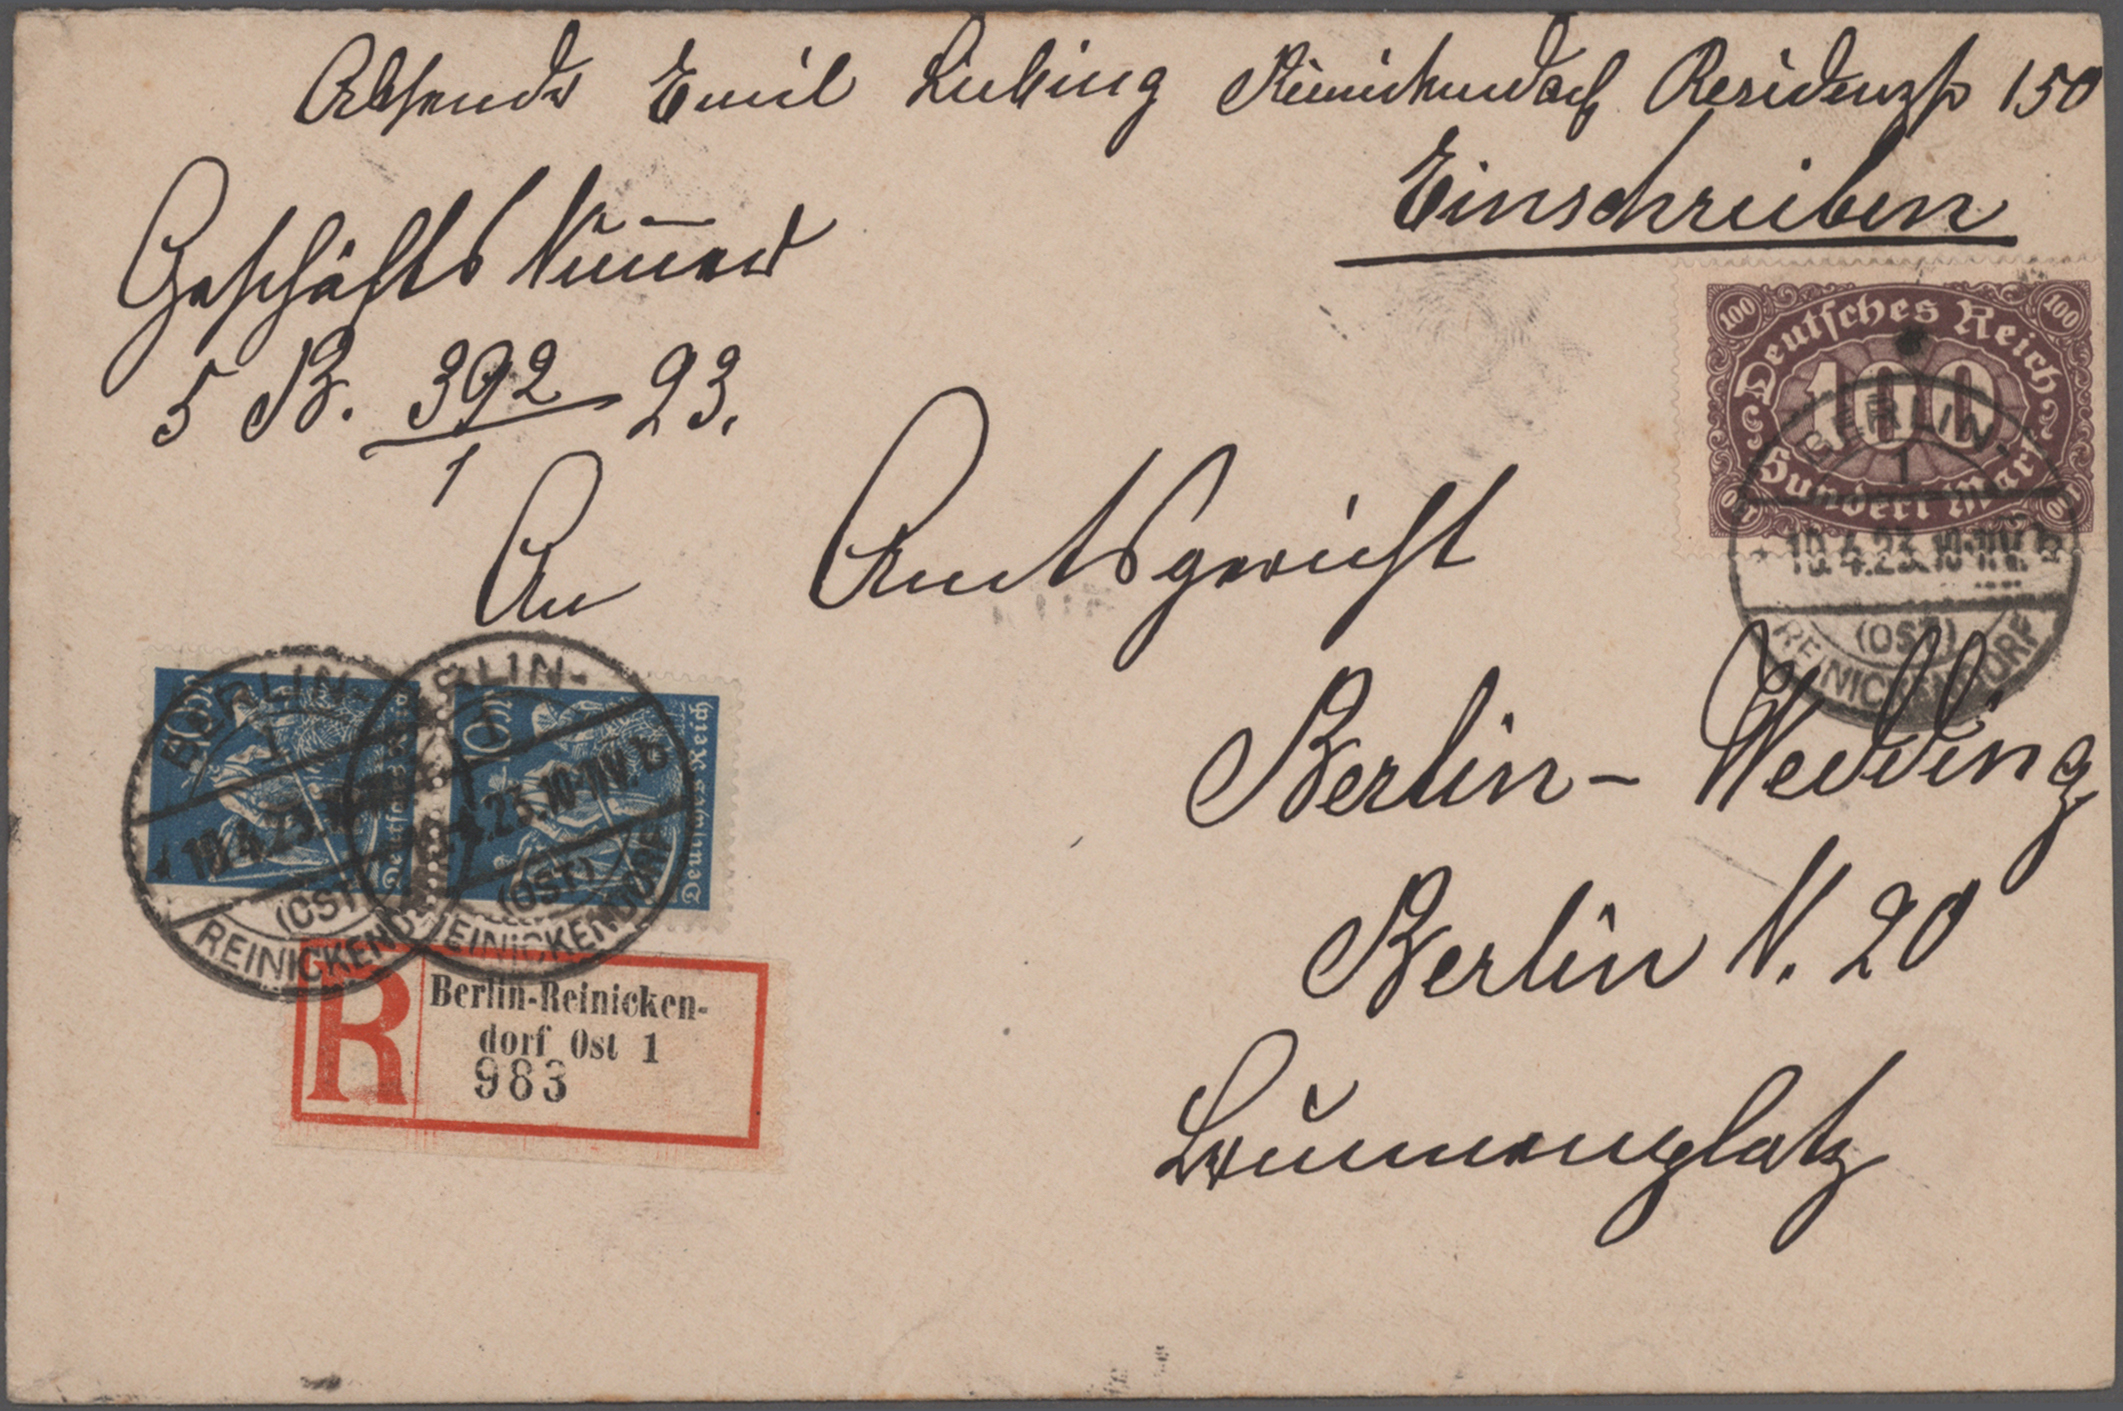 Absender Emil Liebing Reinickendorf Residenzstr 150
Einschreiben
Geschäfts Nummer
5 B. 392/1 23.
An Amtsgericht
Berlin-Wedding
Berlin N. 20
Brunnenplatz
100 100
Deutsches Reich
100
Hundert Mark
BERLIN-
1
* 10.4.23.10-11V. b
(OST)
REINICKENDORF
10M
Deutsches Reich
10M
Deutsches Reich
BERLIN-
1
* 10.4.23.10-11V.
(OST)
REINICKENDORF
BERLIN-
1
10.4.23.10-11V. b
(OST)
REINICKENDORF
R
Berlin-Reinicken-
dorf Ost 1
983